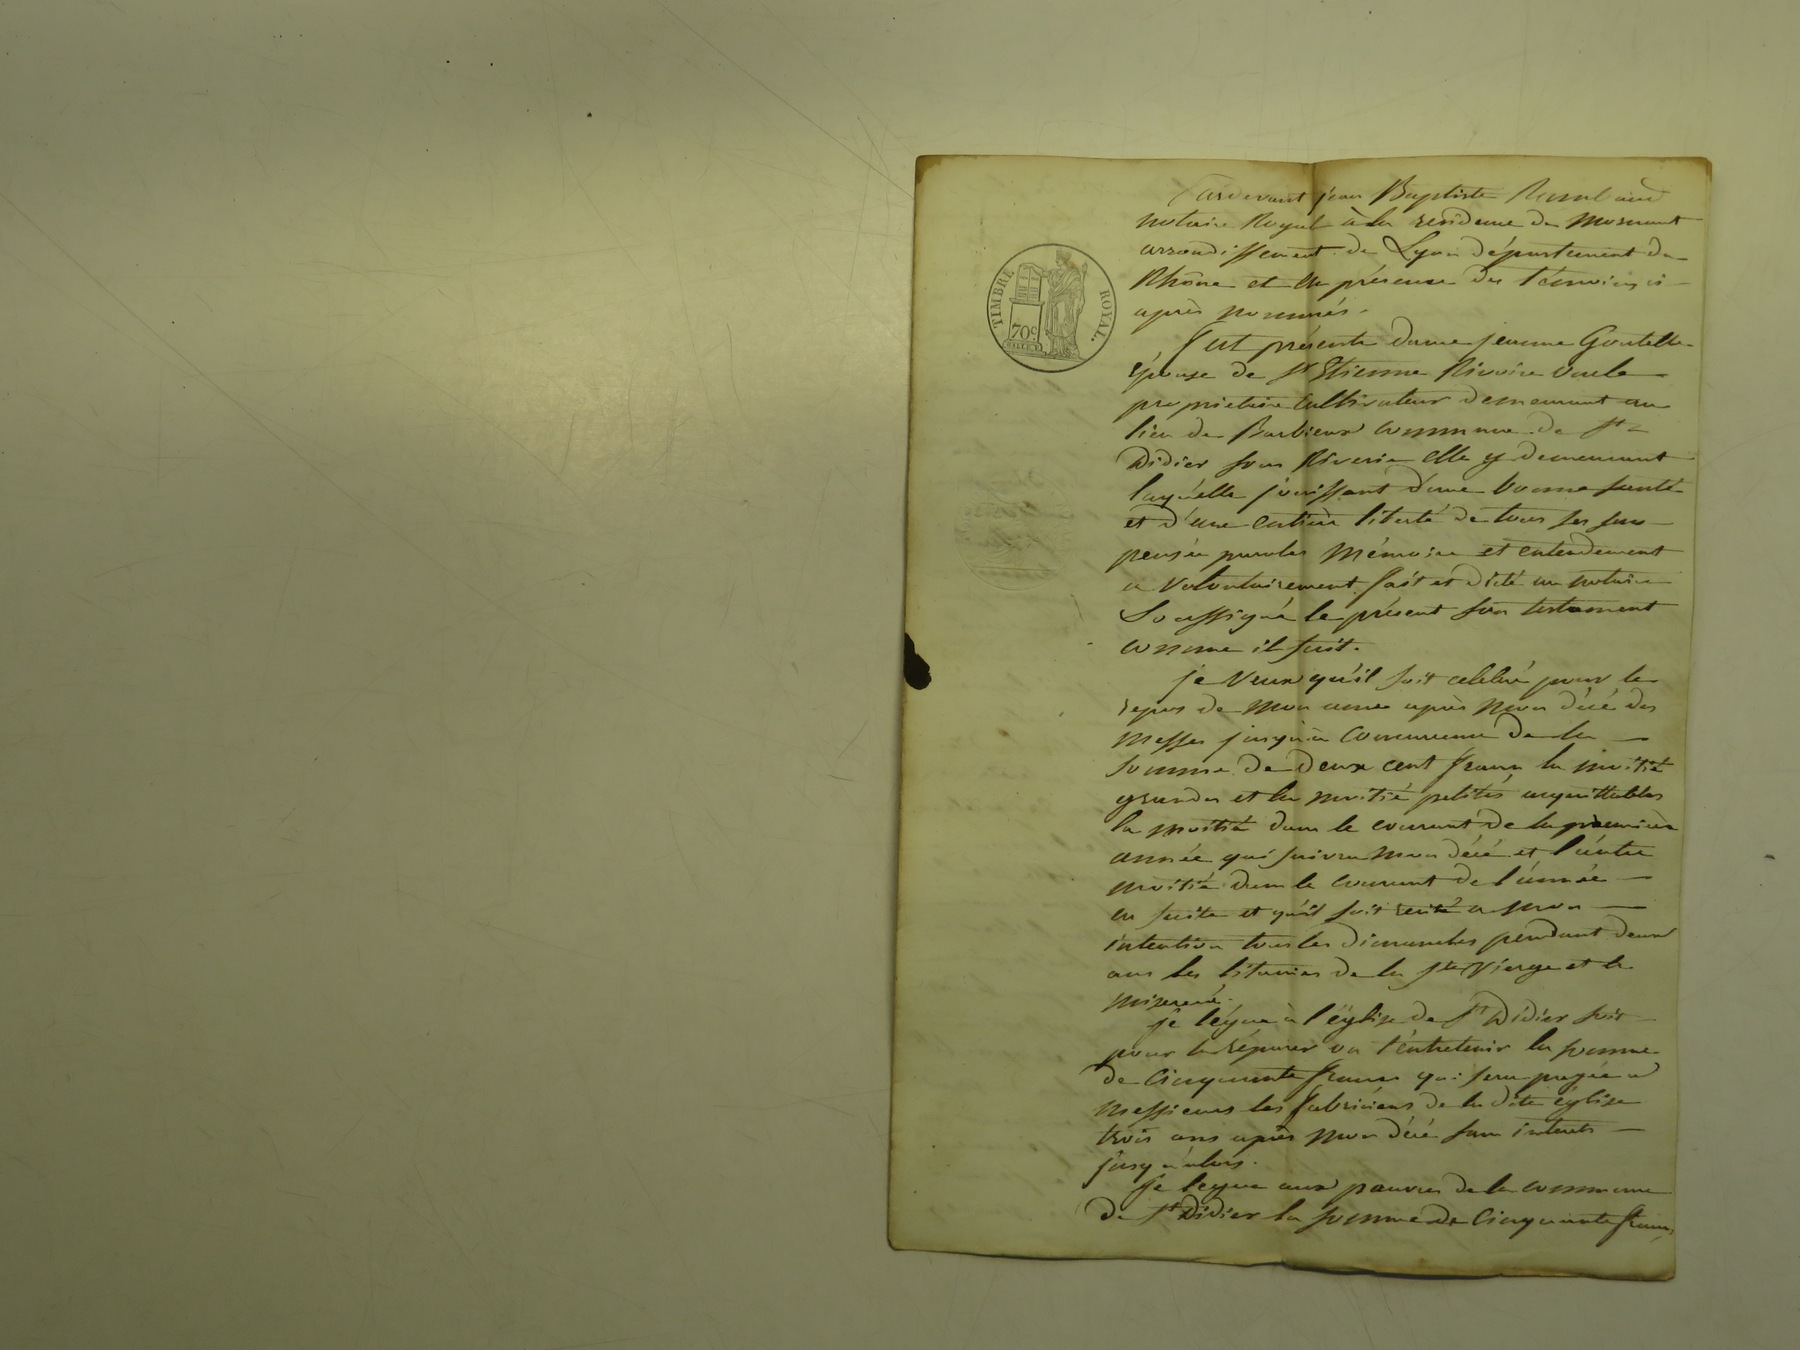 TIMBRE ROYAL.
70c
Pardevant jean Baptiste
notaire Royal à la residence de Mornant
arrondissement de Lyon département du
Rhône et en présence des témoins ci
après nommés.
fut présente dame jeanne Goutelle
épouse de Sr Etienne Rivoire
propriétaire cultivateur demeurant au
lieu de Barbieux commune de St
Didier sous Riverie elle y demeurant
laquelle jouissant d'une bonne santé
et d'une entière liberté de tous ses sens
pensée paroles Mémoire et entendement
a volontairement fait et dicté au notaire
Soussigné le présent son testament
comme il suit.
je veux qu'il soit celebré pour le
repos de mon ame après mon décé des
messes jusqu'à concurrence de la
somme de deux cent francs la moitié
grandes et la moitié petites acquittables
la moitié dans le courant de la première
année qui suivra mon décé et l'autre
moitié dans le courant de l'année
en suite et qu'il soit recité a mon
intention tous les dimanches pendant deux
ans les litanies de la Ste Vierge et le
miseréré.
je légue à l'église de St Didier soit
pour la réparer ou l'entretenir la somme
de cinquante francs qui sera payée a
messieurs les fabriciens de la dite église
trois ans après mon décé sans interets
jusqu'alors.
je legue aux pauvres de la commune
de St Didier la somme de cinquante francs